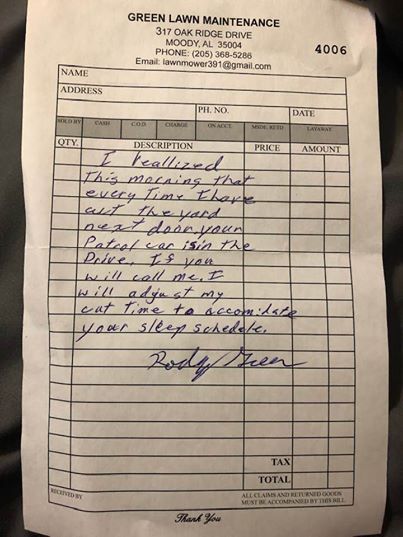 GREEN LAWN MAINTENANCE
317 OAK RIDGE DRIVE
MOODY, AL 35004
PHONE: (205) 368-5286
Email: lawnmower391@gmail.com
4006
NAME
ADDRESS
PH. NO. DATE
SOLD BY CASH C.O.D. CHARGE ON ACCT. MSDE. RETD LAYAWAY
QTY. DESCRIPTION PRICE AMOUNT
I reallized
This morning that
every Time I have
cut the yard
next door your
Patrol car is in the
Drive. If you
will call me, I
will adjust my
cut time to accomidate
your sleep schedele.
Rody Green
TAX
TOTAL
RECEIVED BY
ALL CLAIMS AND RETURNED GOODS
MUST BE ACCOMPANIED BY THIS BILL
Thank You